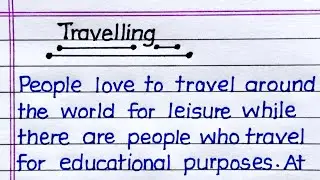 Travelling
People love to travel around
the world for leisure while
there are people who travel
for educational purposes. At